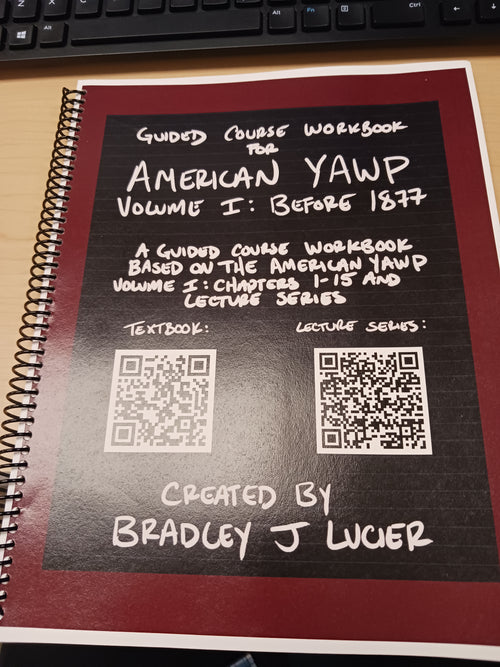 Alt
Fn
Ctrl
GUIDED COURSE WORKBOOK
FOR
AMERICAN YAWP
VOLUME I: BEFORE 1877
A GUIDED COURSE WORKBOOK
BASED ON THE AMERICAN YAWP
VOLUME I: CHAPTERS 1-15 AND
LECTURE SERIES
TEXTBOOK:
LECTURE SERIES:
CREATED BY
BRADLEY J LUCIER